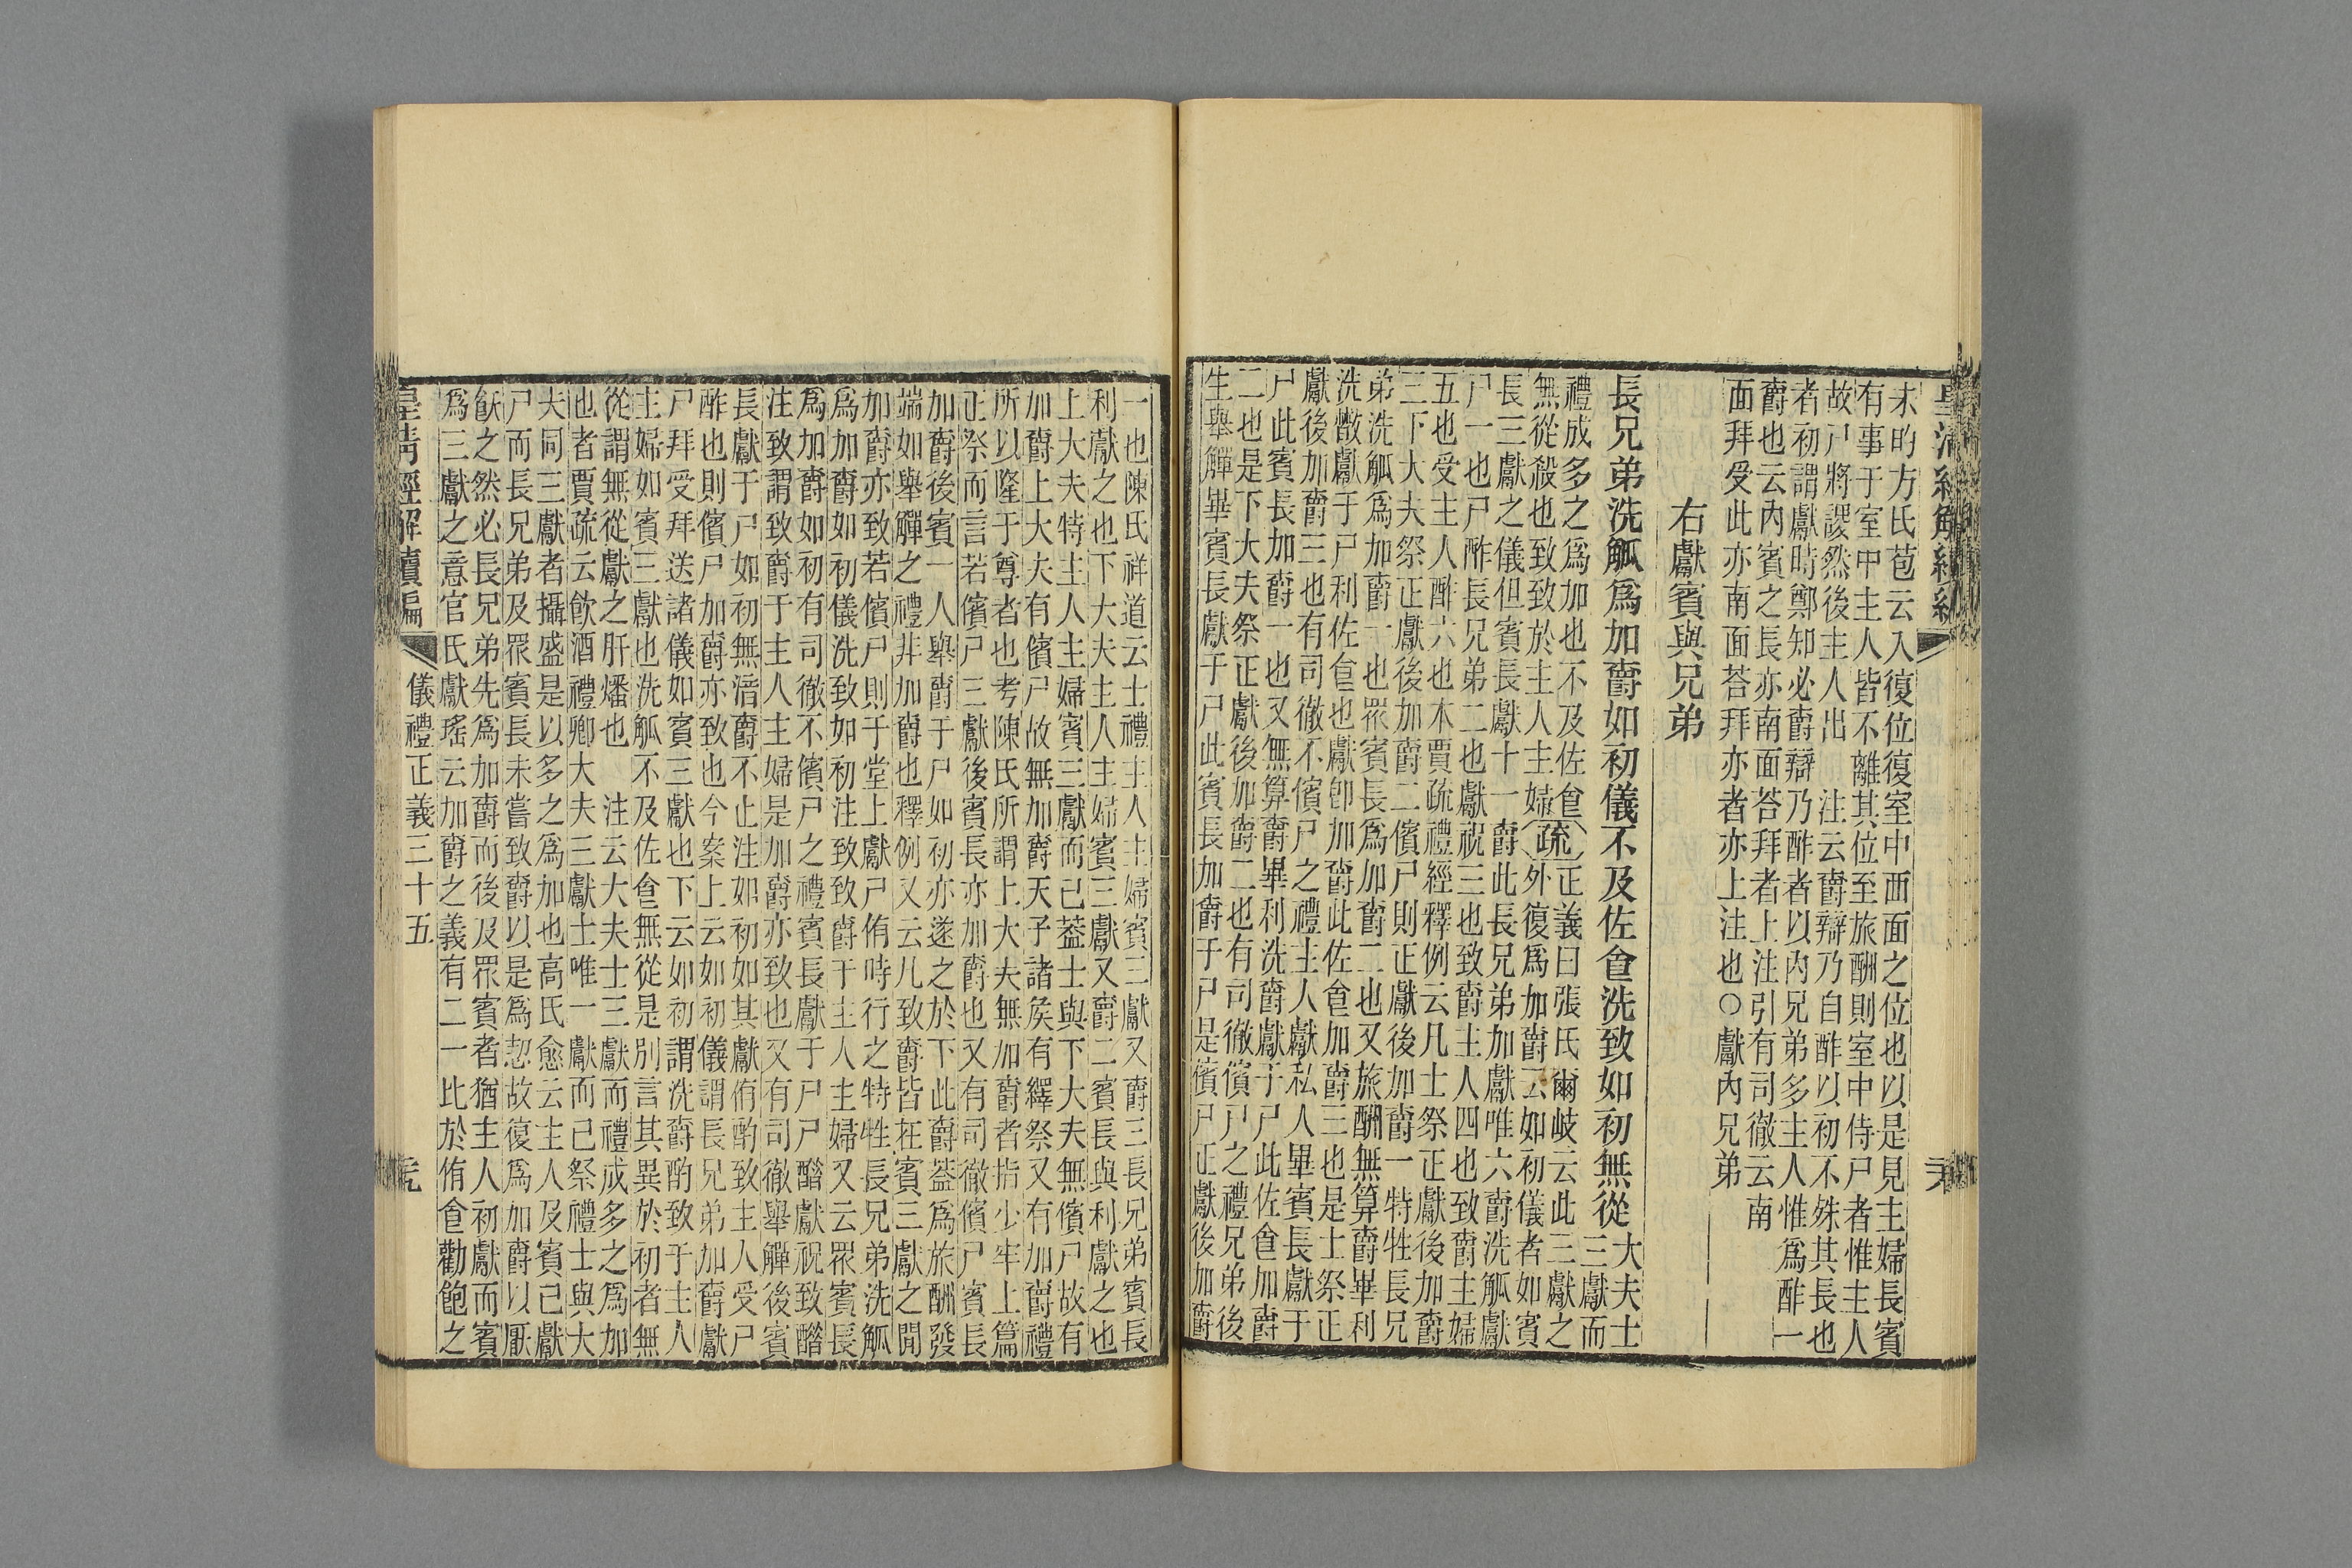 皇清經解續編
未昀方氏苞云入復位復室中西面之位也以是見主婦長賓
有事于室中主人皆不離其位至旅酬則室中侍尸者惟主人
故尸將謖然後主人出 注云爵辯乃自酢以初不殊其長也
者初謂獻時鄭知必爵辯乃酢者以內兄弟多主人惟爲酢一
爵也云內賓之長亦南面荅拜者上注引有司徹云南
面拜受此亦南面荅拜亦者亦上注也○獻內兄弟
右獻賓與兄弟
長兄弟洗觚爲加爵如初儀不及佐食洗致如初無從
大夫士
三獻而
禮成多之爲加也不及佐食
無從殺也致致於主人主婦
疏
正義曰張氏爾岐云此三獻之
外復爲加爵云如初儀者如賓
長三獻之儀但賓長獻十一爵此長兄弟加獻唯六爵洗觚獻
尸一也尸酢長兄弟二也獻祝三也致爵主人四也致爵主婦
五也受主人酢六也本賈疏禮經釋例云凡士祭正獻後加爵
三下大夫祭正獻後加爵二儐尸則正獻後加爵一特牲長兄
弟洗觚爲加爵一也眾賓長爲加爵二也又旅酬無算爵畢利
洗散獻于尸利佐食也獻卽加爵此佐食加爵三也是士祭正
獻後加爵三也有司徹不儐尸之禮主人獻私人畢賓長獻于
尸此賓長加爵一也又無算爵畢利洗爵獻于尸此佐食加爵
二也是下大夫祭正獻後加爵二也有司徹儐尸之禮兄弟後
生舉觶畢賓長獻于尸此賓長加爵于尸是儐尸正獻後加爵
一也陳氏祥道云士禮主人主婦賓三獻又爵三長兄弟賓長
利獻之也下大夫主人主婦賓三獻又爵二賓長與利獻之也
上大夫特主人主婦賓三獻而已葢士與下大夫無儐尸故有
加爵上大夫有儐尸故無加爵天子諸侯有繹祭又有加爵禮
所以隆于尊者也考陳氏所謂上大夫無加爵者指少牢上篇
正祭而言若儐尸三獻後賓長亦加爵也又有司徹儐尸賓長
加爵後賓一人舉爵于尸如初亦遂之於下此爵葢爲旅酬發
端如舉觶之禮非加爵也釋例又云凡致爵皆在賓三獻之閒
加爵亦致若儐尸則于堂上獻尸侑時行之特牲長兄弟洗觚
爲加爵如初儀洗致如初注致致爵于主人主婦又云眾賓長
爲加爵如初有司徹不儐尸之禮賓長獻于尸尸醋獻祝致醋
注致謂致爵于主人主婦是加爵亦致也又有司徹舉觶後賓
長獻于尸如初無湆爵不止注如初如其獻侑酌致主人受尸
酢也則儐尸加爵亦致也今案上云如初儀謂長兄弟加爵獻
尸拜受拜送諸儀如賓三獻也下云如初謂洗爵酌致于主人
主婦如賓三獻也洗觚不及佐食無從是別言其異於初者無
從謂無從獻之肝燔也 注云大夫士三獻而禮成多之爲加
也者賈疏云飲酒禮卿大夫三獻士唯一獻而已祭禮士與大
夫同三獻者攝盛是以多之爲加也高氏愈云主人及賓已獻
尸而長兄弟及眾賓長未嘗致爵以是爲恝故復爲加爵以厭
飫之然必長兄弟先爲加爵而後及眾賓者猶主人初獻而賓
爲三獻之意官氏獻瑤云加爵之義有二一比於侑食勸飽之
皇清經解續編 儀禮正義三十五